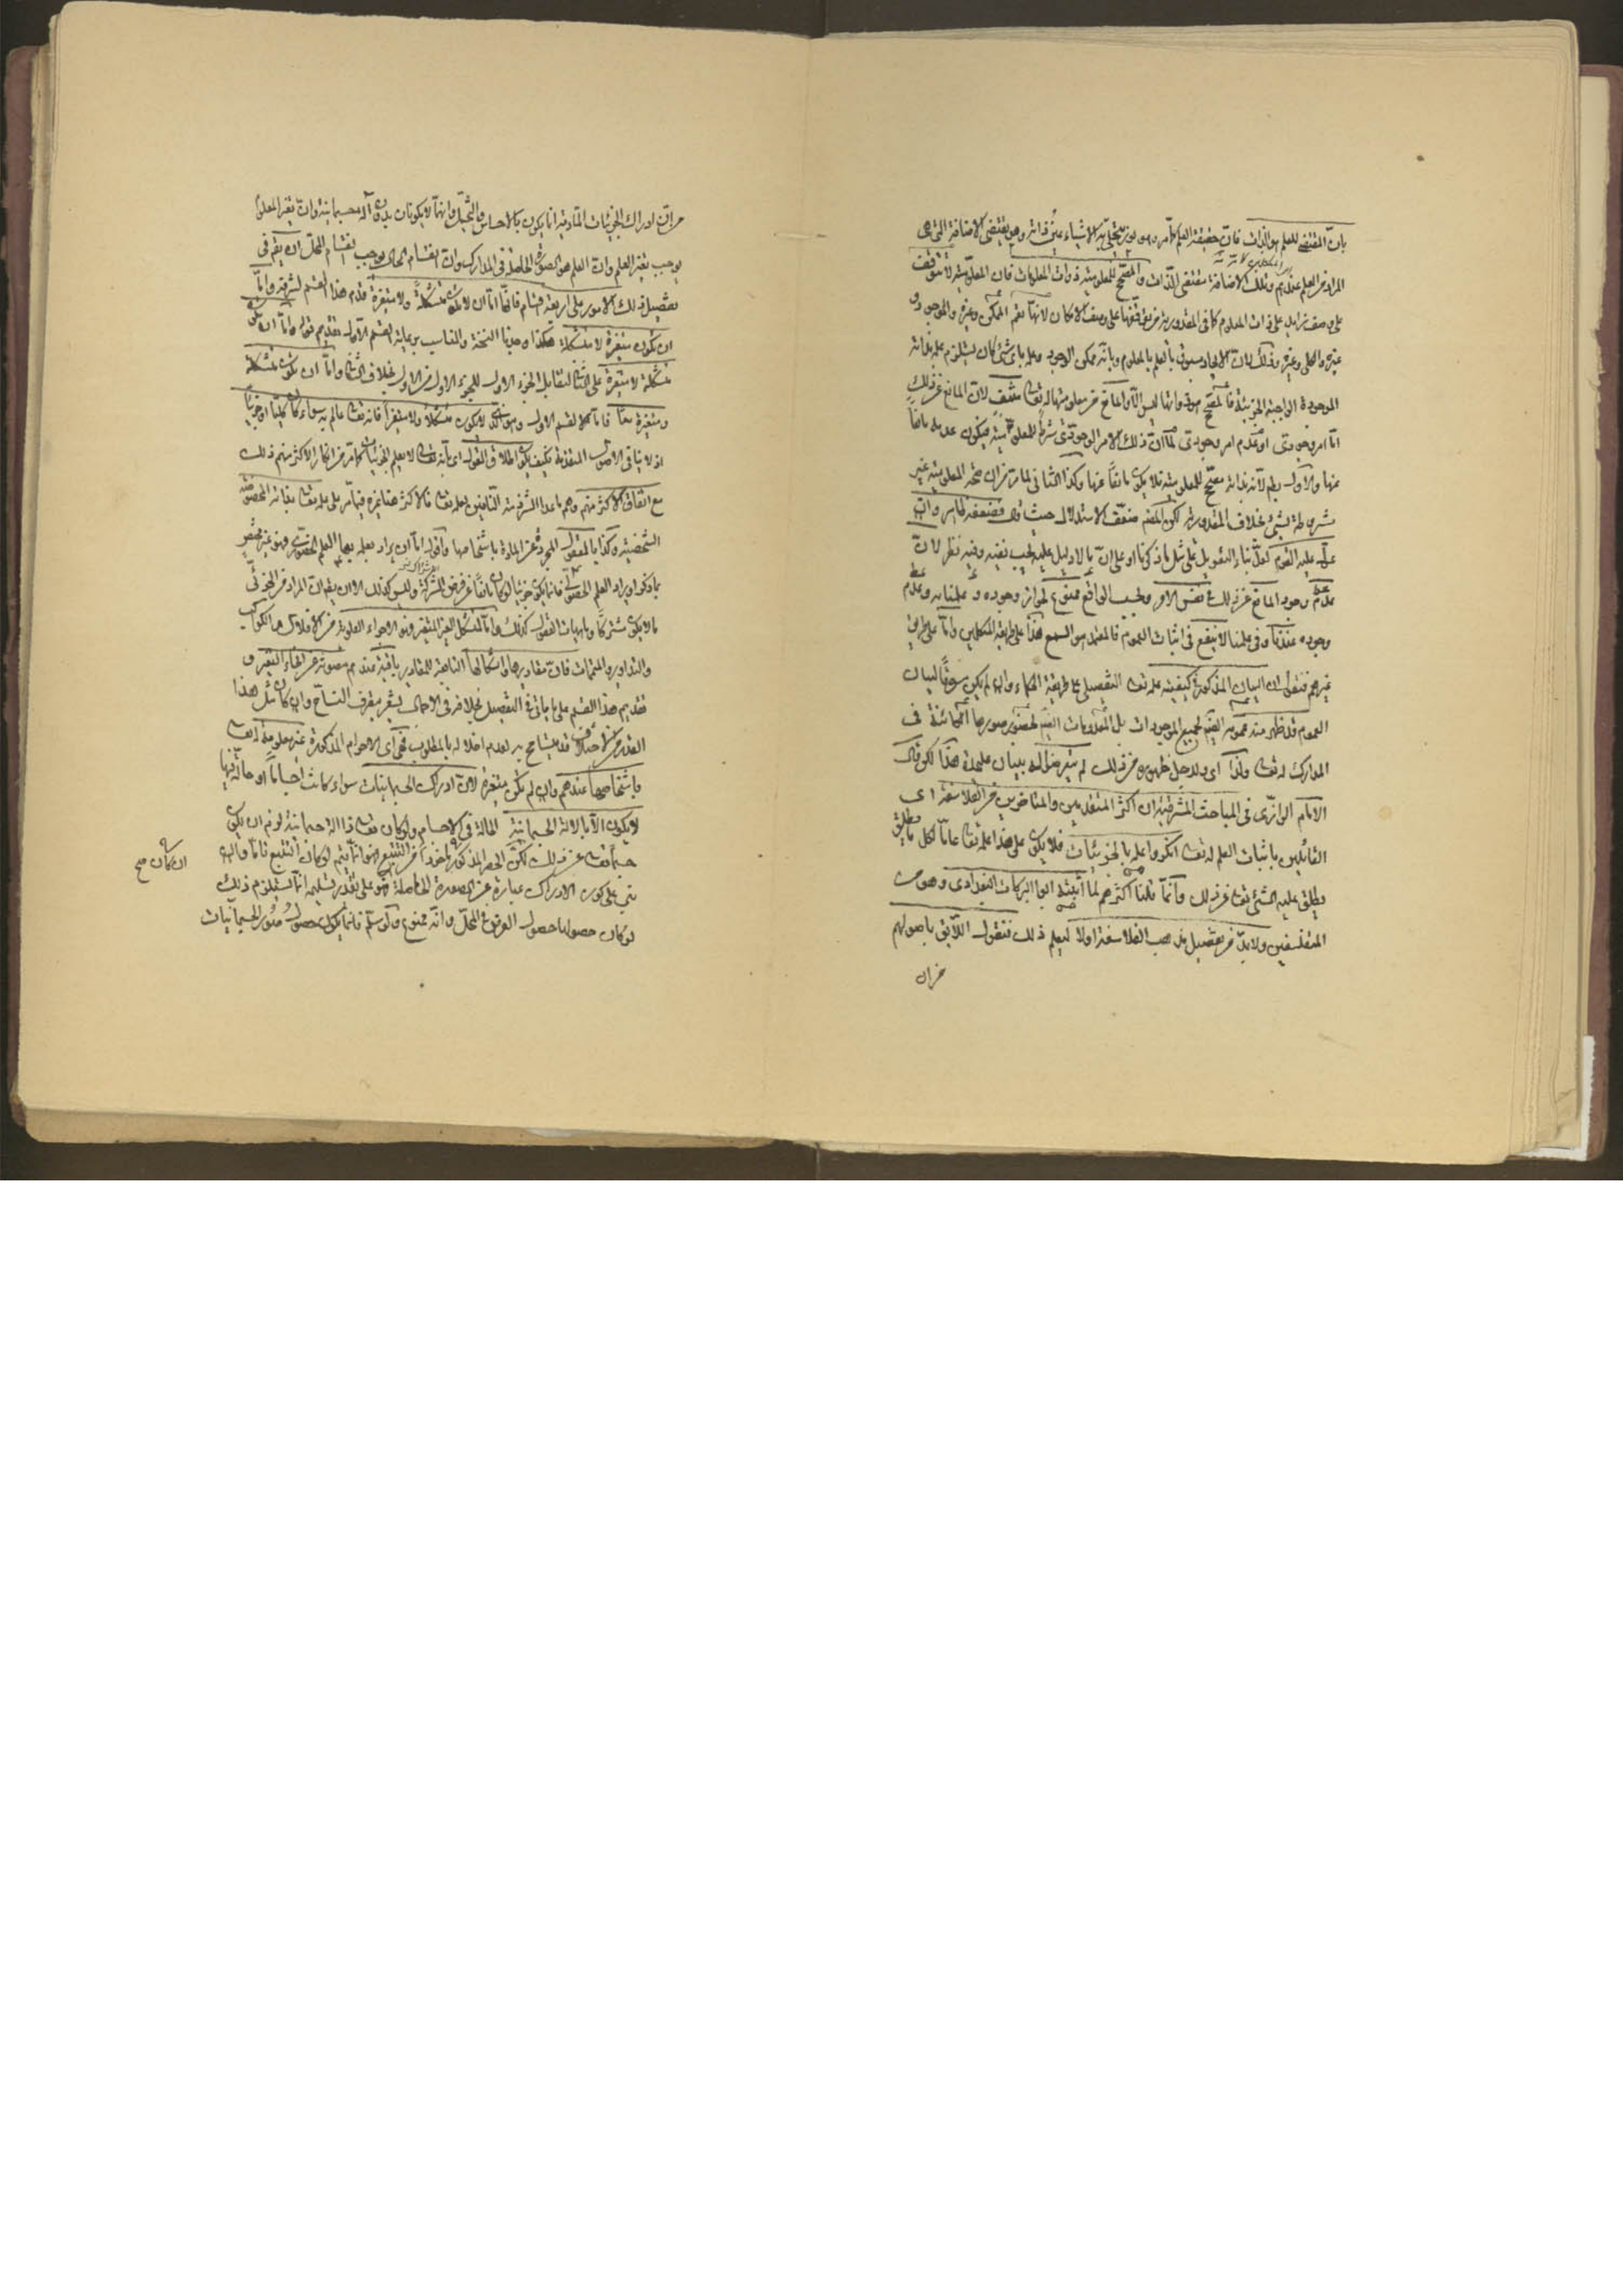 بانّ المقتضى للعلم هو الذات فانّ حقيقة العلم كما مر وهو نور يتجلى به الاشياء عين ذاته وهى يقتضى الاضافة التى هى
المراد من العلم عندهم وتلك الاضافة مقتضى الذات والمصحح للمعلومية ذوات المعلومات فان المعلومية لا تتوقف
على وصف زايد على ذات المعلوم كما فى المقدورية من توقفها على وصف الامكان لانها تعم الممكن وغيره والموجود و
غيره والكلى وغيره وذلك لان الايجاد مسبوق بالعلم بالمعلوم وبانه ممكن الوجود وعلمه باى شئ كان يستلزم علمه بذاته
الموجودة الواجبة الجزئية فالمصحح هو ذواتها ليس الا والمانع عن معلوميتها له تعالى منتف لان المانع عن ذلك
اما امر وجودى او عدم امر وجودى لما ان ذلك الامر الوجودى شرط للمعلومية فيكون عدمه مانعا
عنها والاول بط لانه بذاته مصحح للمعلومية فلا يكون مانعا عنها وكذا الثانى لما مر من ان صحة المعلومية غير
مشروطة بشئ بخلاف المقدورية لكن المصنف ضعف الاستدلال حيث قال وضعفه ظاهر وان
عوّل عليه القوم لعل بناء التعويل على مثل ما ذكرنا او على ان ما لا دليل عليه يجب نفيه وفيه نظر لان
عدم وجود المانع عن ذلك فى نفس الامر وبحسب الواقع ممنوع لجواز وجوده و علمنا به وعدم
وجوده عندنا وفى علمنا لا ينفع فى اثبات العموم فالمعتمد هو السمع هذا على طريقة المتكلمين واما على طريق
غيرهم فنقول ان البيان المذكور فى كيفية علمه تعالى التفصيلى على طريقة الحكماء وان لم يكن مسوقا لبيان
العموم قد ظهر منه عمومه ايضا لجميع الموجودات بل المعدومات ايضا لحضور صورها الكائنة فى
المدارك له تعالى ولذا اى ولاجل ظهوره من ذلك لم يتعرضوا له ببيان على حدة هذا لكن قال
الامام الرازى فى المباحث المشرقية ان اكثر المتقدمين والمتاخرين من الفلاسفة اى
القائلين باثبات العلم له تعالى انكروا علمه بالجزئيات فلا يكون على هذا علمه تعالى عاما لكل ما يطلق
يطلق عليه الشئ تعالى عن ذلك وانما قلنا اكثرهم لما اثبته ابو البركات البغدادى وهو من
المتفلسفين ولا بد من تفصيل مذهب الفلاسفة اولا ليعلم ذلك فنقول اللايق باصولهم
من ان
من ان ادراك الجزئيات المادية انما يكون بالاحساس والتخيل وانهما لا يكونان بدون آلة جسمانية وان تغير المعلوم
يوجب تغير العلم وان العلم هو الصورة الحاصلة فى المدارك وان انقسام الحال يوجب انقسام المحل ان يقع فى
تفصيل ذلك الامور على اربعة اقسام فانها اما ان لا تكون متشكلة ولا متغيرة قدم هذا القسم لشرفه واما
ان تكون متغيرة لا متشكلة هكذا وجدنا النسخة والمناسب برعاية القسم الاول تقديم قوله واما ان تكون
متشكلة لا متغيرة على الثانى لتقابل الجزء الاول للجزء الاول من الاول بخلاف الثانى واما ان تكون متشكلة
ومتغيرة معا فاما القسم الاول وهو الذى لا يكون متشكلا ولا متغيرا فانه تعالى عالم به سواء كان كليا او جزئيا
اذ لا ينافى الاصول المتقدمة فكيف يكون اطلاق القول اى بانه تعالى لا يعلم الجزئيات كما مر من انكار الاكثر منهم ذلك
مع اتفاق الاكثر منهم وهم ما عدا الشرذمة النافين لعلمه تعالى فالاكثر هنا غيره فيما مر على علمه تعالى بذاته المخصوصة
الشخصية وكذا بالعقول المجردة عن المادة باشخاصها واقول اما ان يراد بعلمه بها العلم الحضورى وهو غير مختص
بما ذكر او يراد العلم الحصولى فانما يكون جزئيا لو كان مانعا عن فرض الشركة وليس كذلك الا ان يقال ان المراد من الجزئى
ما لا يكون مشتركا وماهيات العقول كذلك واما المتشكل الغير المتغير وهو الاجرام العلوية من الافلاك والكواكب
والتداوير والمتممات فان مقاديرها واشكالها التابعة للمقادير باقية عندهم مصونة عن انحاء التغير و
تقديم هذا القسم على ما ياتى فى التفصيل بخلافه فى الاجمال يشعر بتصرف النساخ وان كان مثل هذا
القدر من الاختلاف قد يتسامح به لعدم اخلاله بالمطلوب فهى اى الاجرام المذكورة غير معلومة له تعالى
باشخاصها عندهم وان لم تكن متغيرة لان ادراك الجسمانيات سواء كانت اجساما او حالة فيها
لا يكون الا بالالة الجسمانية الحالة فى الاجسام ولو كان تعالى ذا الة جسمانية لزم ان يكون
جسما تعالى عن ذلك لكن الحصر المذكور ماخوذ من التتبع وانما يتم لو كان التتبع تاما وانه
مبنى على كون الادراك عبارة عن الصورة الحاصلة وهو على تقدير تسليمه انما يستلزم ذلك
لو كان حصولها حصول العرض فى المحل وانه ممنوع ولو سلم فانما يكون حصول صور الجسمانيات
ان كان صح